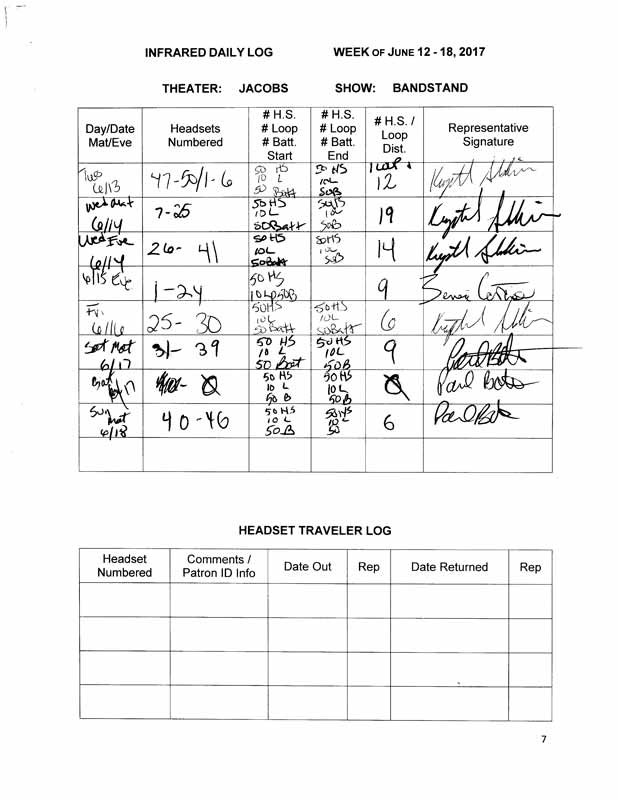 INFRARED DAILY LOG WEEK OF JUNE 12 - 18, 2017
THEATER: JACOBS SHOW: BANDSTAND
Day/Date Mat/Eve
Headsets Numbered
# H.S. # Loop # Batt. Start
# H.S. # Loop # Batt. End
# H.S. / Loop Dist.
Representative Signature
Tue 6/13
47-50/1-6
50 HS
10 L
50 Batt
50 HS
10L
50B
12
Wed Mat 6/14
7-25
50HS
10L
50Batt
50B
19
Wed Eve 6/14
26- 41
50HS
10L
50Batt
50HS
10L
50B
14
6/15 Eve
1-24
50 HS
9
Fri. 6/16
25- 30
50HS
10L
50 Batt
50HS
10L
50Batt
6
Sat Mat 6/17
31- 39
50 HS
10 L
50 Batt
50HS
10L
50B
9
0
50 HS
10 L
50 B
50 HS
10L
50B
0
Paul
Sun Mat 6/18
40-46
50HS
10 L
50B
50HS
10L
50
6
HEADSET TRAVELER LOG
Headset Numbered
Comments / Patron ID Info
Date Out
Rep
Date Returned
Rep
7